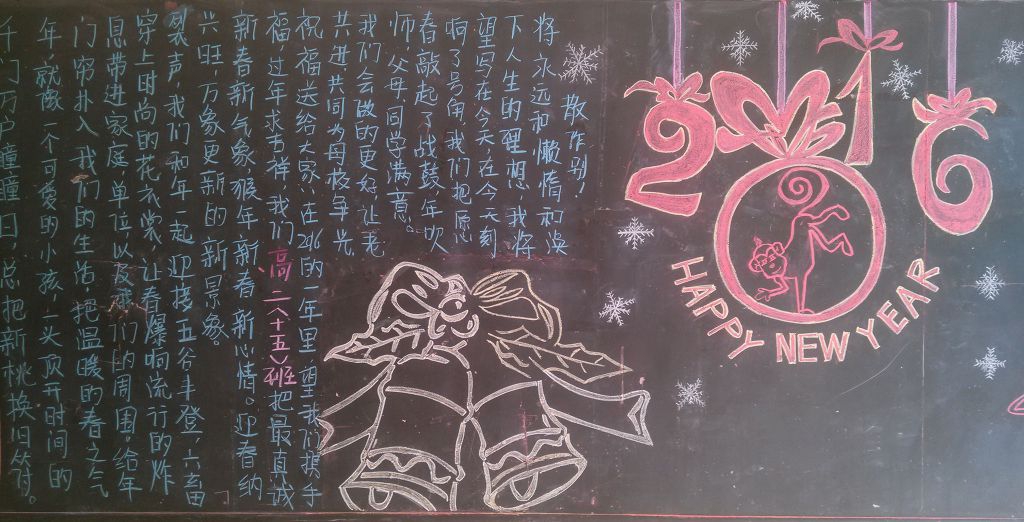 千门万户曈曈日,总把新桃换旧符。
年,就像一个可爱的小孩,一头顶开时间的
门窗扑入我们的生活,把温暖的春之气
息带进家庭,单位以及我们的周围。给年
穿上时尚的花衣裳,让春爆响流行的炸
裂声,我们和年一起迎接五谷丰登,六畜
兴旺,万象更新的新景象。
新春新气象,猴年新春新心情。迎春纳
福,过年求吉祥,我们高二(十五)班把最真诚
祝福送给大家,在2016的一年里,愿我们携手
共进共同为母校争光。
我们会做的更好,让老
师,父母,同学满意。
春敲起了战鼓,年吹
响了号角,我们把愿
望写在今天,在今天刻
下人生的理想,我将
将永远和懒惰和涣
散作别!
2016
HAPPY NEW YEAR